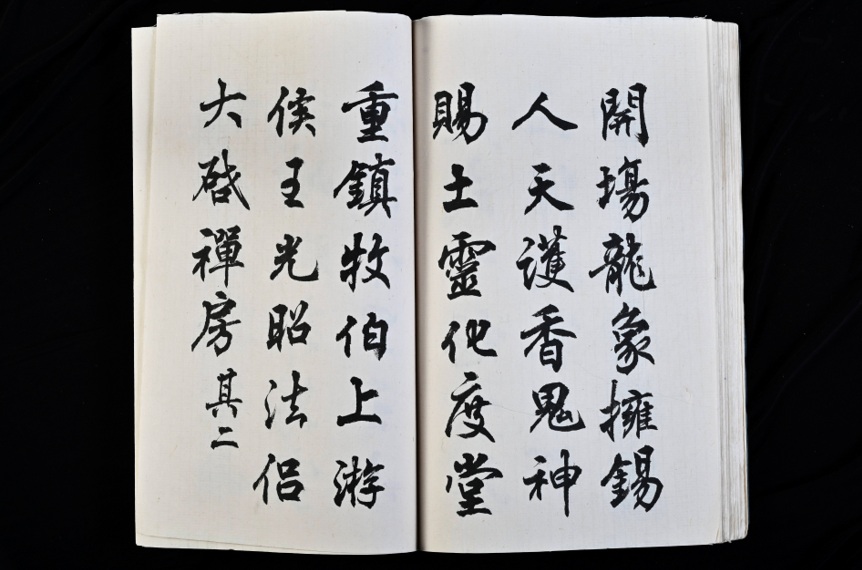 開場龍象擁錫
人天護香鬼神
賜土靈化度堂
重鎮牧伯上游
侯王光昭法侶
大啓禪房其二